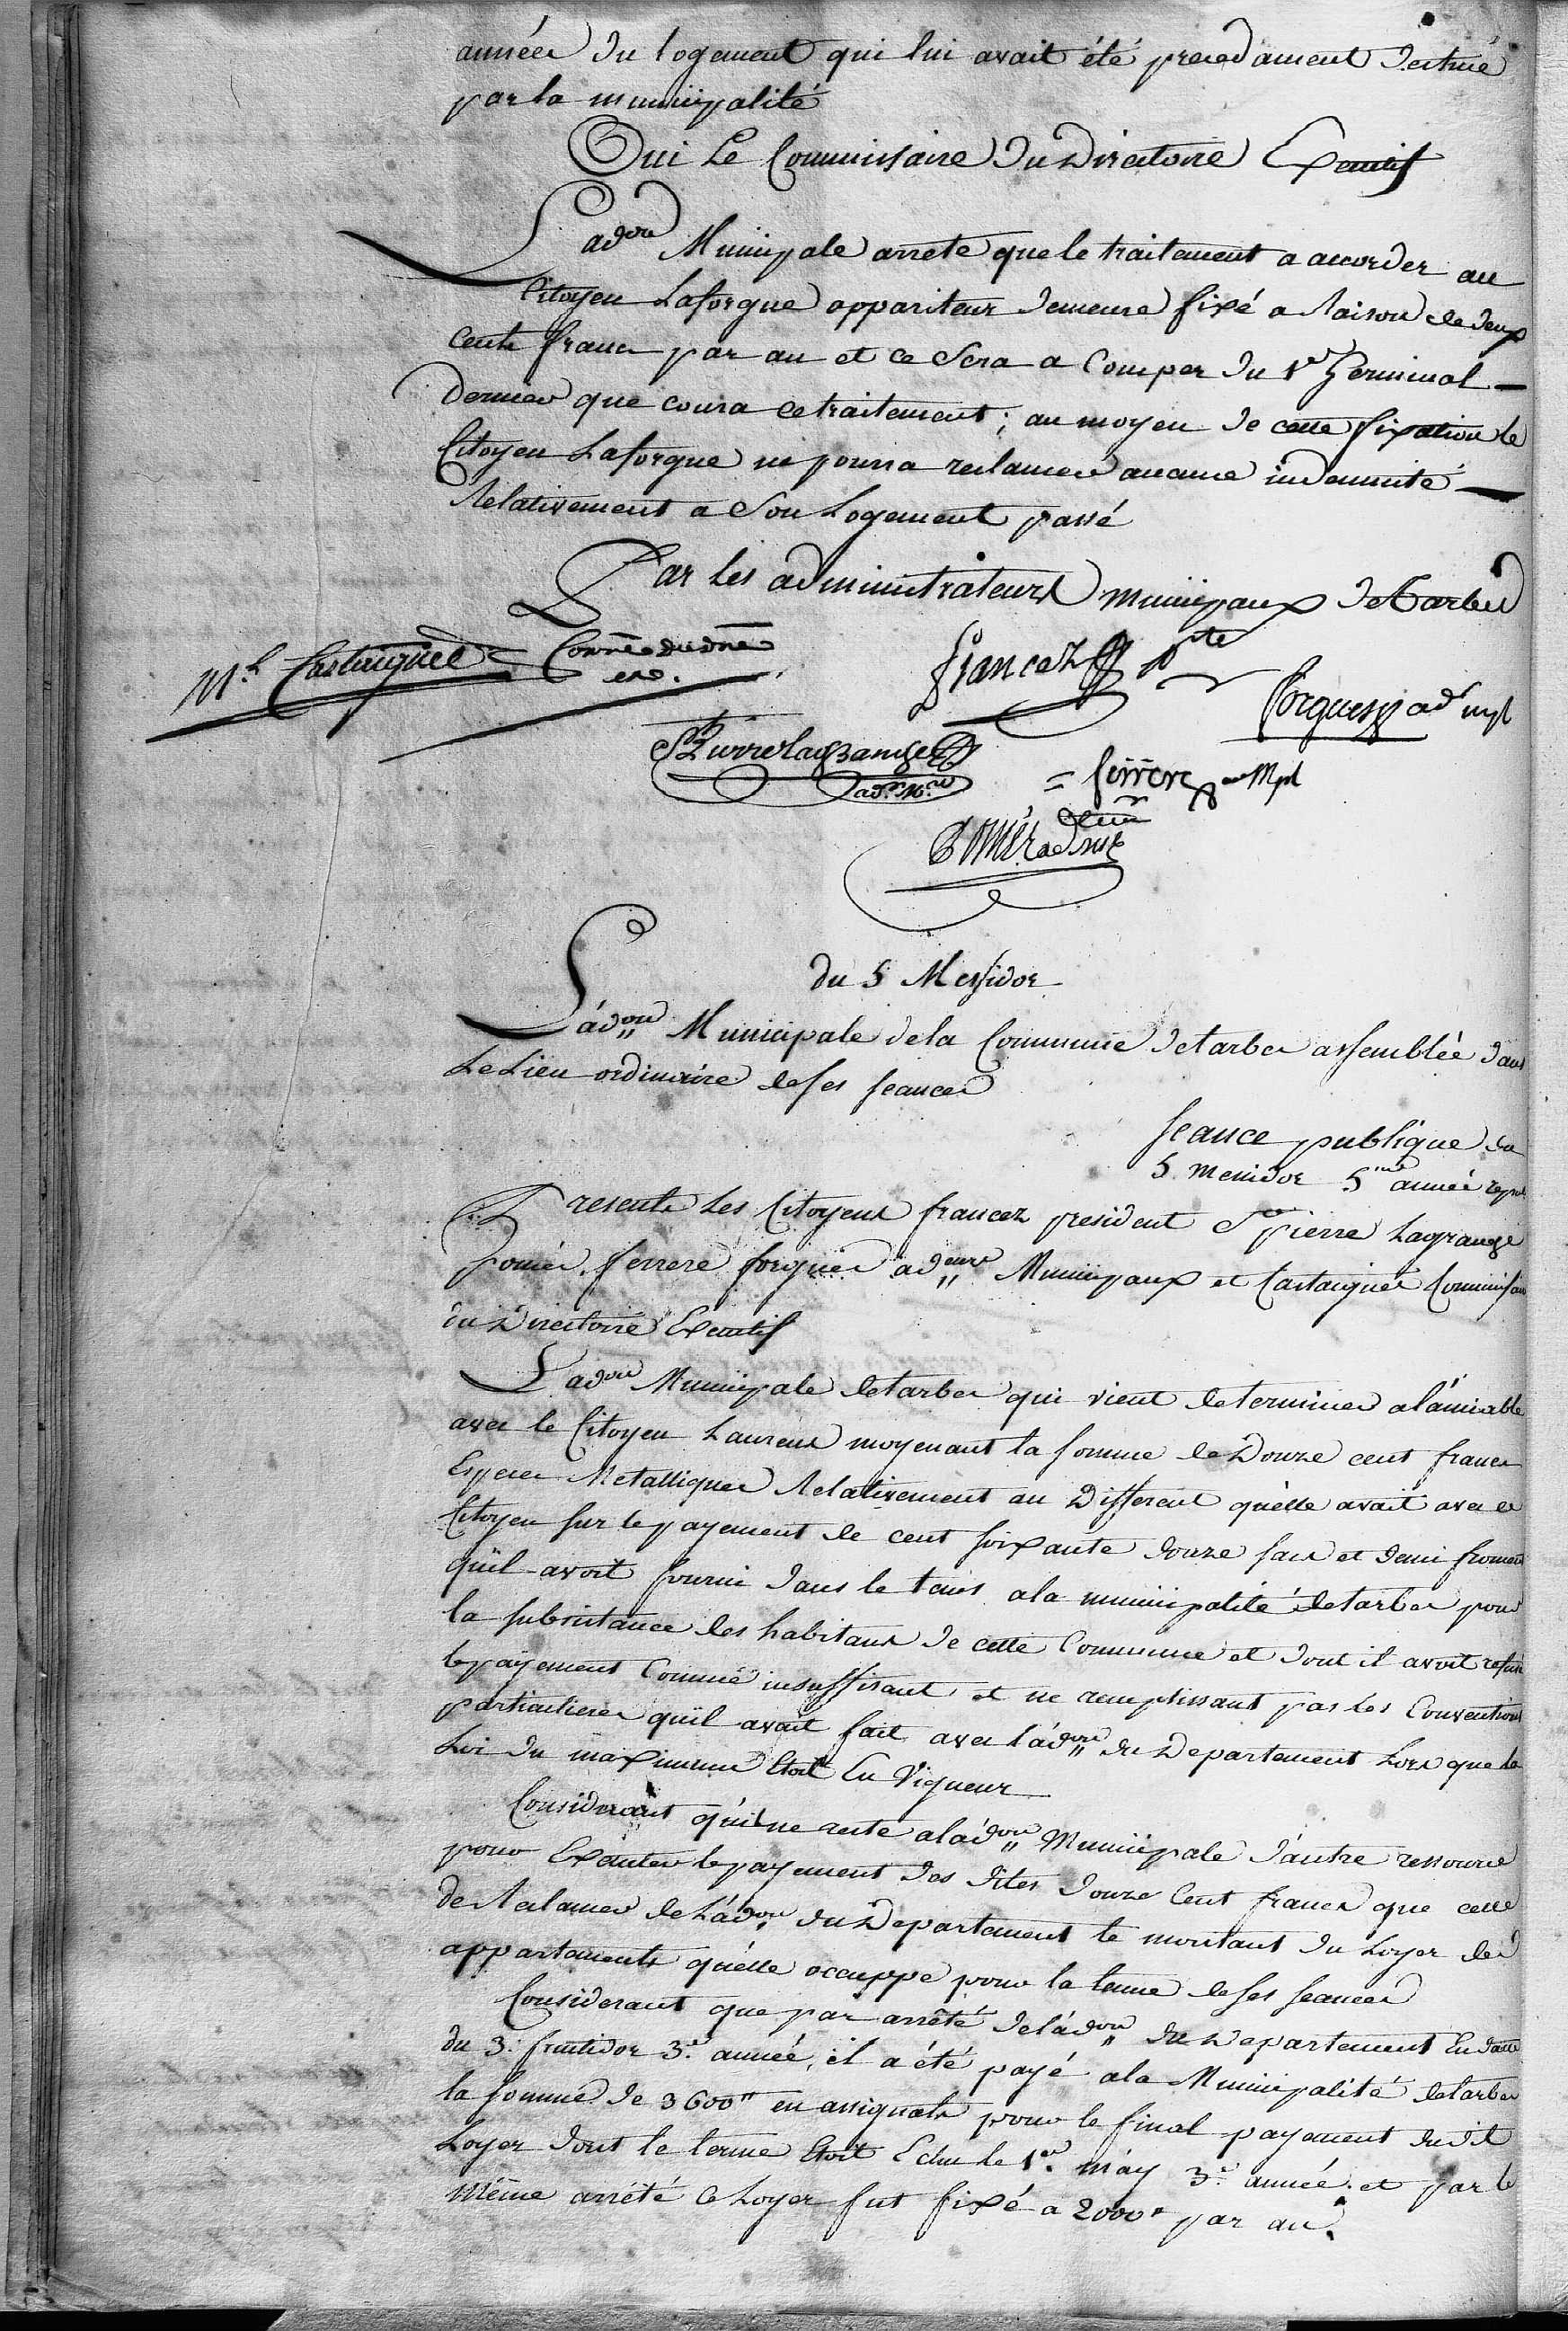 années du logement qui lui avait été precedament destiné
par la municipalité
Oui Le Commissaire du Directoire Executif
L'adon Municipale arrete que le traitement a accorder au
Citoyen Laforgue appariteur demeure fixé a Raison de deux
cents francs par an et ce Sera a Comper du 1er Germinal
dernier que coura ce traitement ; au moyen de cette fixation le
Citoyen Laforgue ne pourra reclamer aucune indemnité
Relativement a Son Logement passé
Par les administrateurs municipaux de Tarbes
Ml Castaignée Comre du dre
exe.
francez pte
forgues adr mpl
St Pierrelagrange
adr Mal
= ferrere Mpl
Pomés adr mpl
du 5 Messidor
L'adon Municipale de la Commune de tarbes assemblée dans
Le Lieu ordinaire de ses seances
seance publique du
5 Messidor 5me année repue
Presents Les Citoyens francez president St pierre Lagrange
pomés, ferrere forgues adeurs Municipaux et Castaignée Commissaire
du Directoire Executif
L'adon Municipale de tarbes qui vient de terminer a l'amiable
avec le Citoyen Laurens moyenant la somme de Douze cent francs
Especes Metalliques Relativement au Different qu'elle avait avec ce
Citoyen sur le payement de cent soixante douze sacs et demi froment
quil avoit fourni dans le tems a la municipalité de tarbes pour
la subsistance des habitans de cette Commune et dont il avoit refusé
le payement Comme insuffisant et ne remplissant pas Les Conventions
particulieres quil avait fait avec l'adon du Departement Lors que la
Loi du maximum Etoit En Vigueur
Considerant qu'il ne reste a l'adon Municipale d'autre ressource
pour Executer le payement des dites douze Cent francs que celle
de Reclamer de L'adon du Departement le montant du Loyer des
appartements qu'elle occuppe pour la tenue de ses seances
Considerant que par arrêté de l'adon du Departement En date
du 3. fructidor 3.e année, il a été payé a la Municipalité de tarbes
la somme de 3600tt en assignats pour le final payement dudit
Loyer dont le terme Etoit Echu le 1er may 3.e année. et par le
même arrêté ce Loyer fut fixé a 2000tt par an.